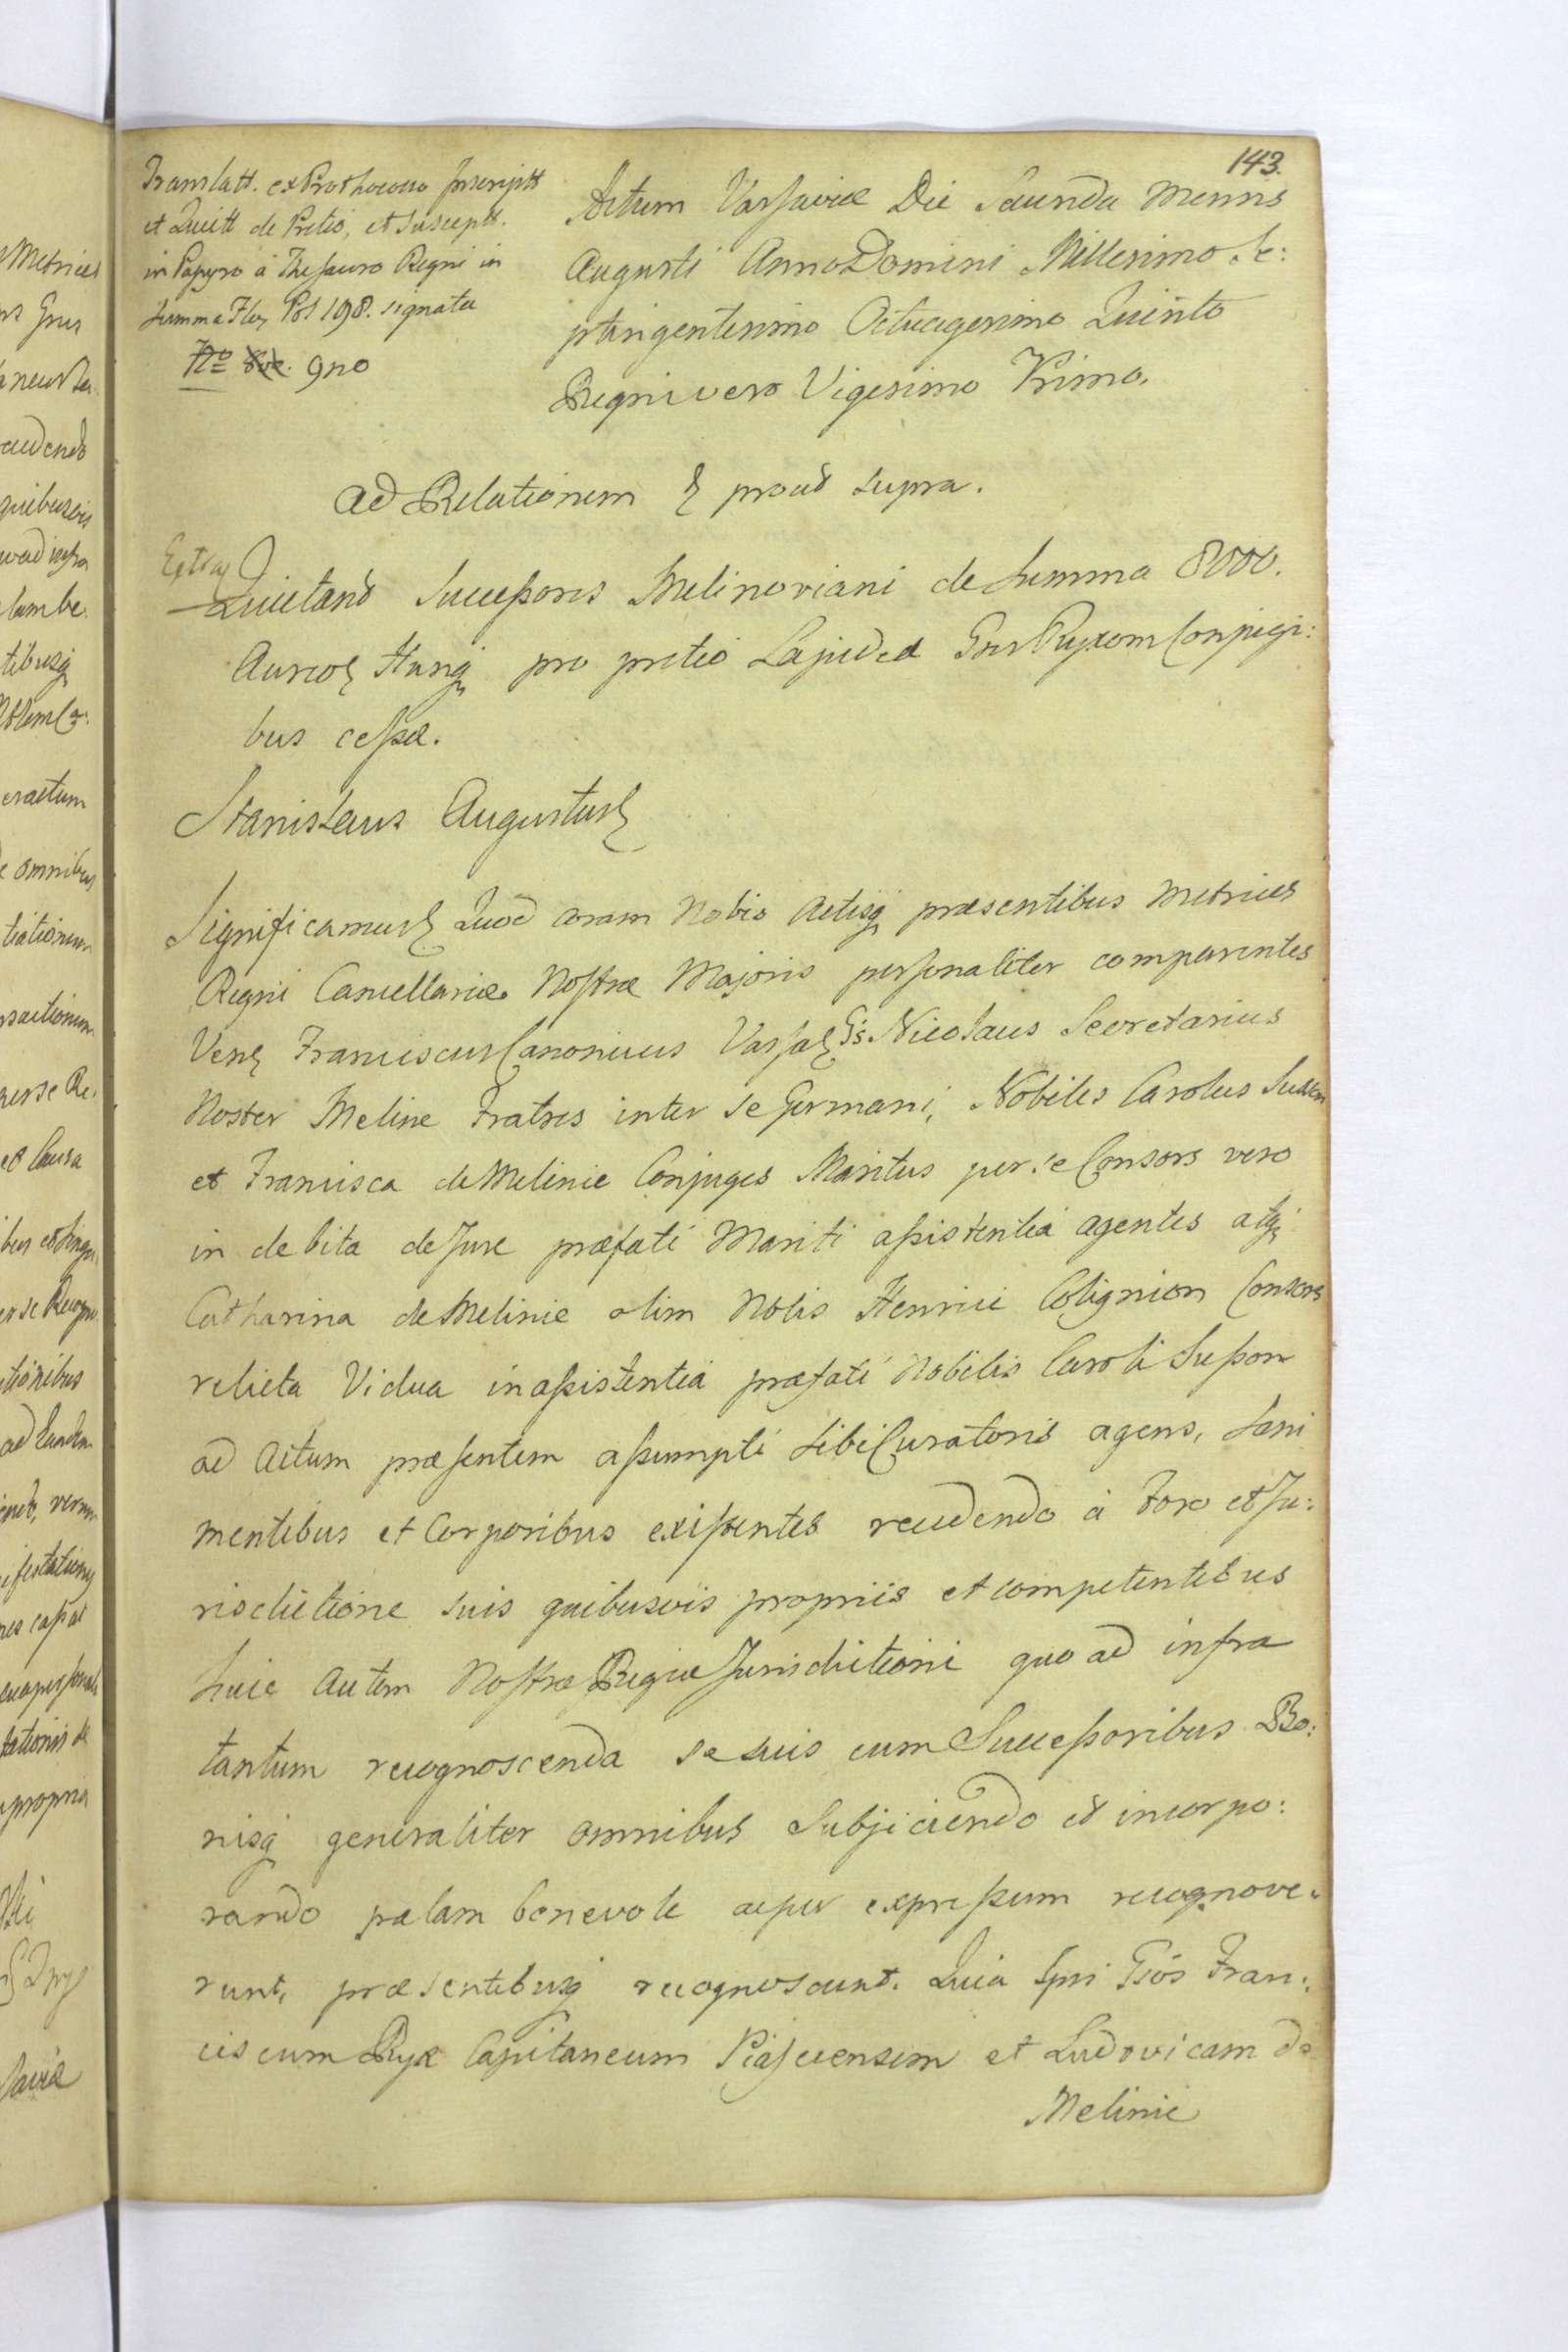 143.
Translatt. ex Prothocollo Inscriptt
et Quiett de Pretio, et Susceptt.
in Papyro à Thesauro Regni in
summa Flor Pol 198. signata
No 9no
Actum Varsaviæ Die Secunda Mensis
Augusti Anno Domini Millesimo Se:
ptingentesimo Octuagesimo Quinto
Regni vero Vigesimo Primo.
Ad Relationem & prout supra.
Extra
Quietand Successores Melinoviani de Summa 8000.
Aureor Hung pro pretio Gnr Ryxom Conjugi:
bus cessæ.
Stanislaus Augustus &
Significamus & Quod coram Nobis Actisq præsentibus Metrices
Regni Cancellariæ Nostræ Majoris personaliter comparentes
Vene Franciscus Canonicus Varsal Gs. Nicolaus Secretarius
Noster Meline Fratres inter se Germani, Nobiles Carolus
et Francisca de Melinie Conjuges Maritus per se Consors vero
in debita de Jure præfati Mariti assistentia agentes atq
Catharina de Melinie olim Noblis Henrici Colignion Consors
relicta Vidua in assistentia præfati Nobilis Caroli
ad Actum præsentem assumpti sibi Curatoris agens, Sani
mentibus et Corporibus existentes recedendo à Foro et Ju:
risdictione suis quibusvis propriis et competentibus
huic autem Nostræ Regiæ Jurisdictioni quo ad infra
tantum recognoscenda se suis cum Successoribus Bo:
nisq generaliter omnibus Subjiciendo et incorpo:
rando palam benevole acper expressum recognove:
runt, præsentibusq recognoscunt. Quia Ipsi Gsos Fran:
ciscum Ryx Capitaneum Piasecensem et Ludovicam de
Melinie